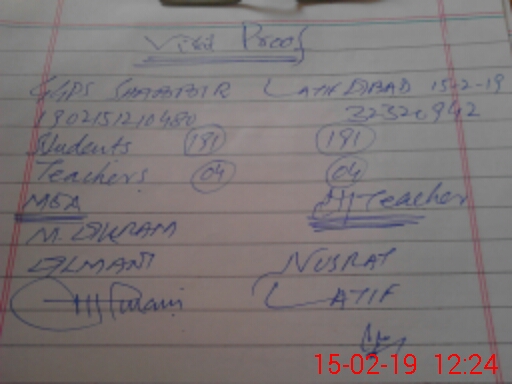 Visit Proof
GGPS SHABBIR LATIFABAD 15-2-19
1902151210480 32320942
Students 191 191
Teachers 04 04
MEA H/Teacher
M. IKRAM
NUSRAT
LATIF
15-02-19 12:24